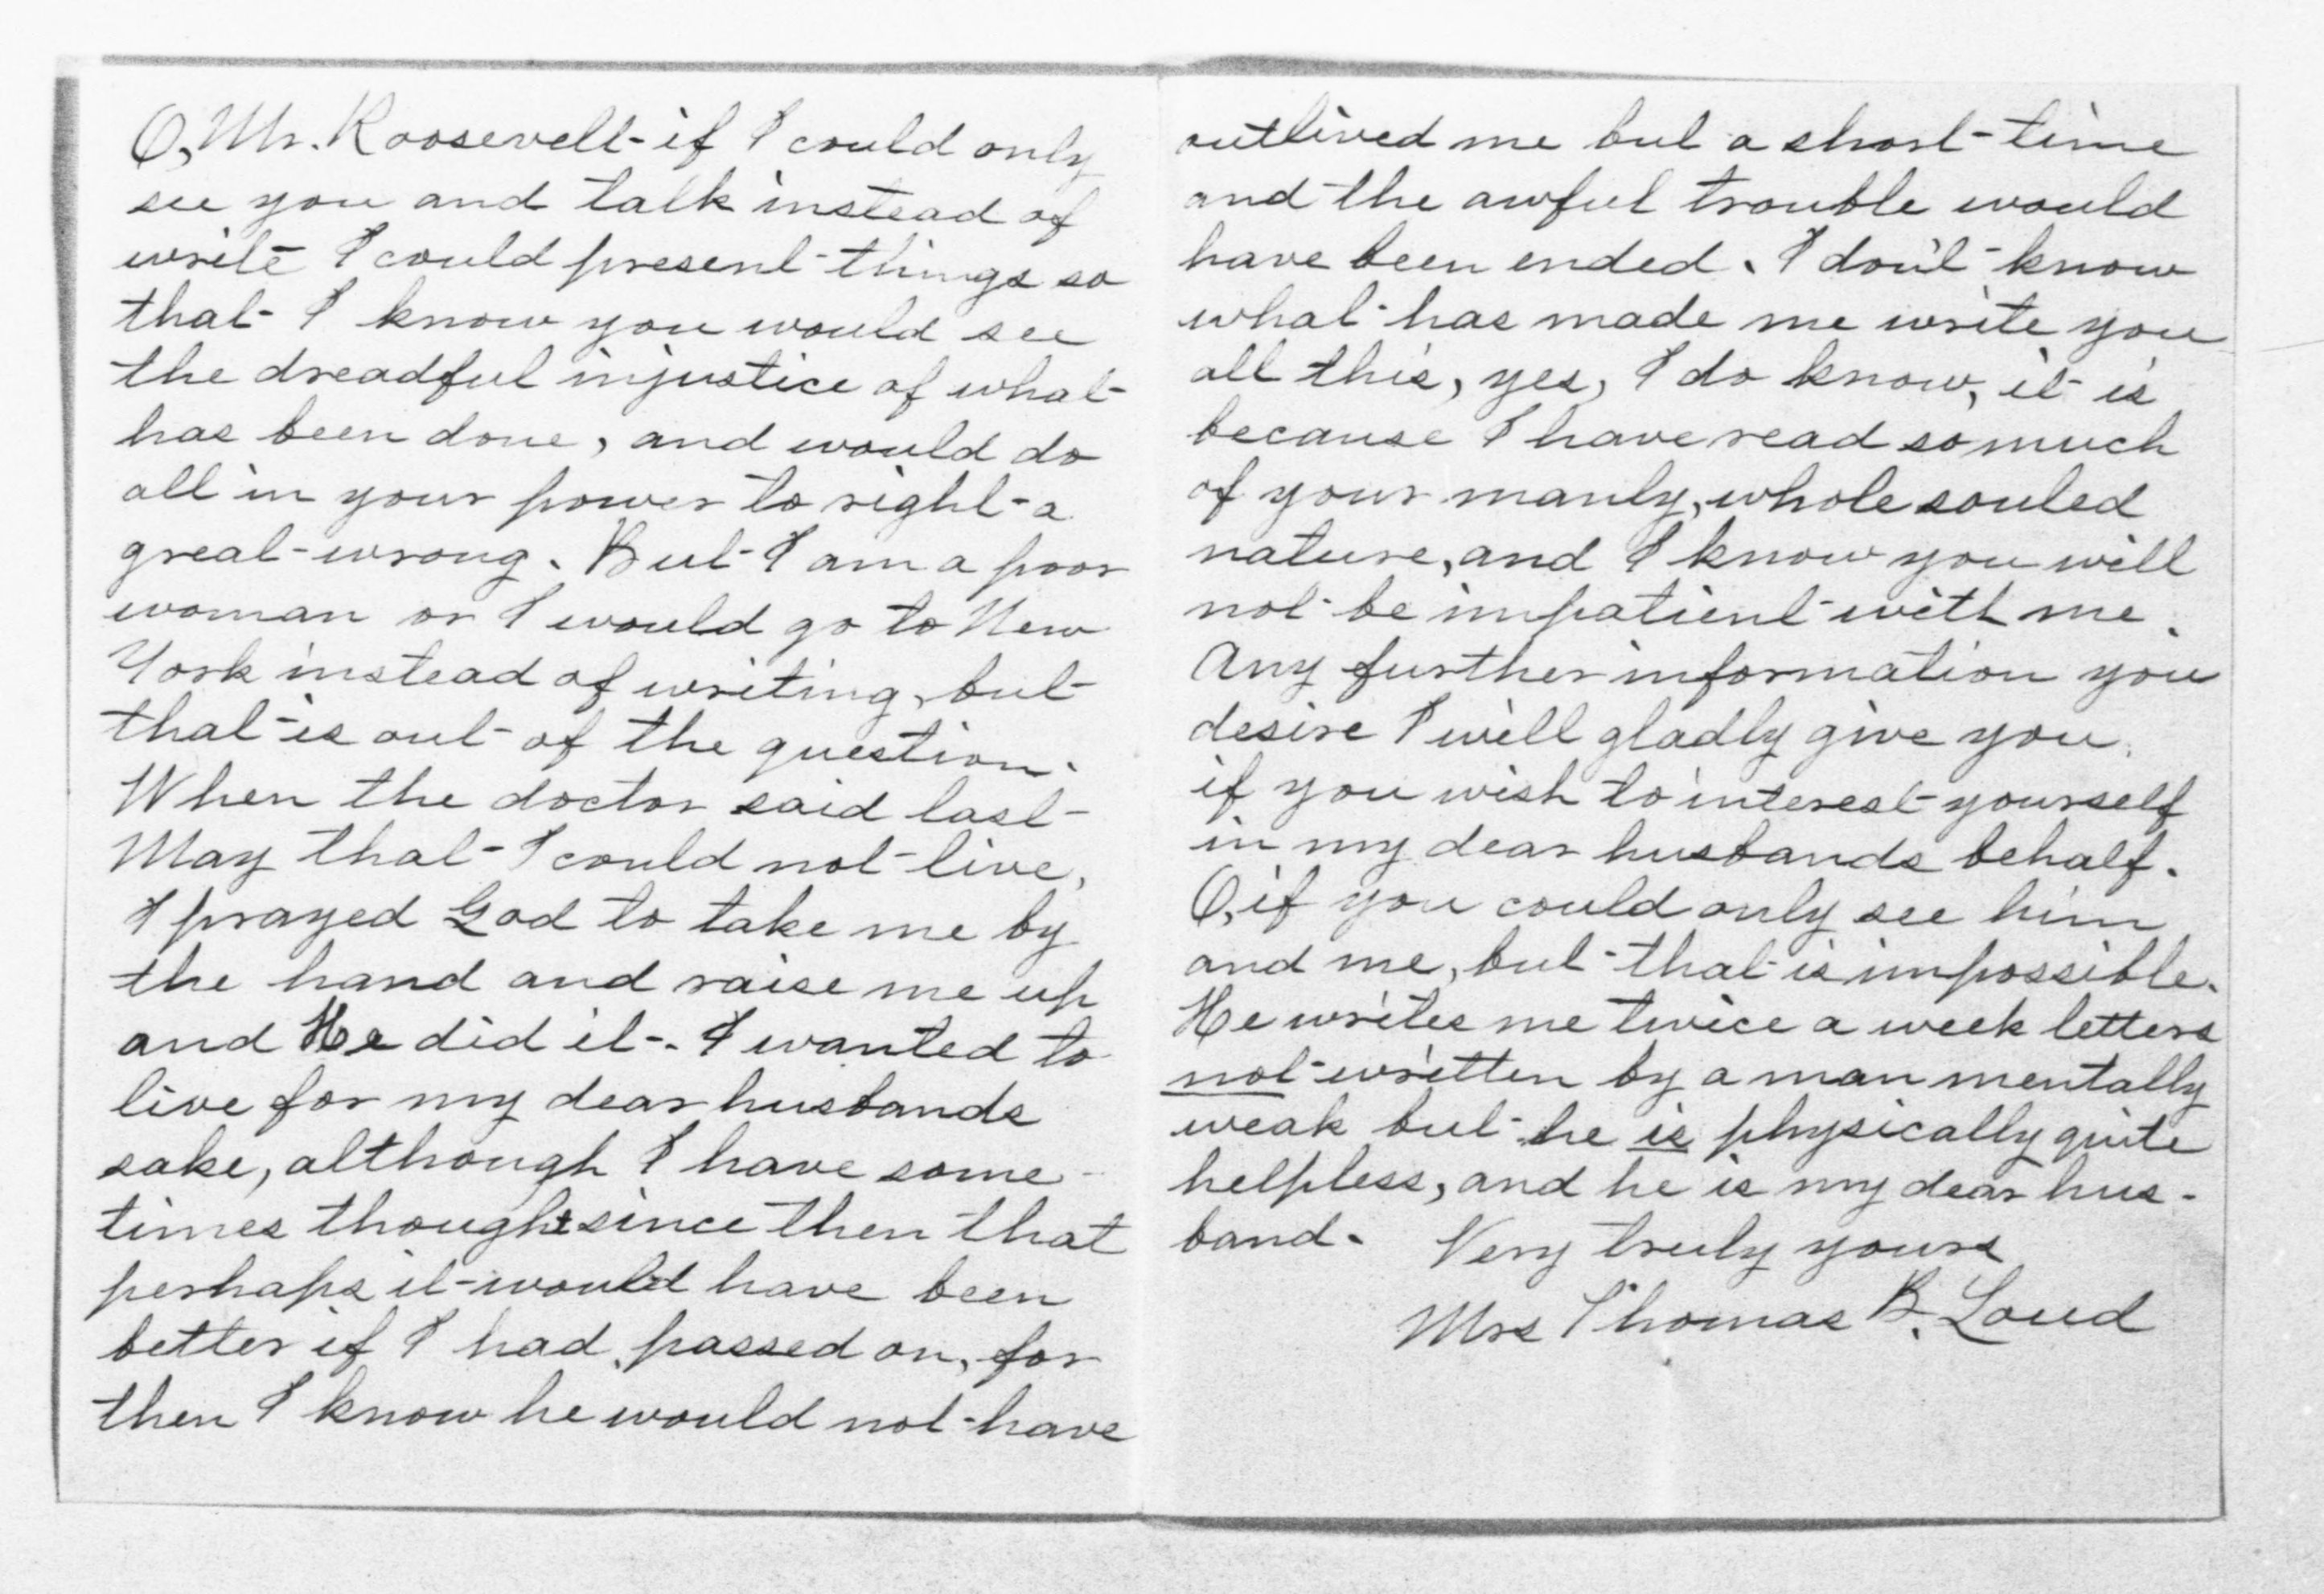 O, Mr. Roosevelt if I could only
see you and talk instead of
write I could present things so
that I know you would see
the dreadful injustice of what
has been done, and would do
all in your power to right a
great wrong. But I am a poor
woman or I would go to New
York instead of writing, but
that is out of the question.
When the doctor said last
May that I could not live,
I prayed God to take me by
the hand and raise me up
and He did it. I wanted to
live for my dear husbands
sake, although I have some
times thought since then that
perhaps it would have been
better if I had passed on, for
then I know he would not have
outlived me but a short time
and the awful trouble would
have been ended. I don't know
what has made me write you
all this, yes, I do know, it is
because I have read so much
of your manly, whole souled
nature, and I know you will
not be impatient with me.
Any further information you
desire I will gladly give you,
if you wish to interest yourself
in my dear husbands behalf.
O, if you could only see him
and me, but that is impossible.
He writes me twice a week letters
not written by a man mentally
weak but he is physically quite
helpless, and he is my dear hus-
band. Very truly yours
Mrs Thomas B. Loud